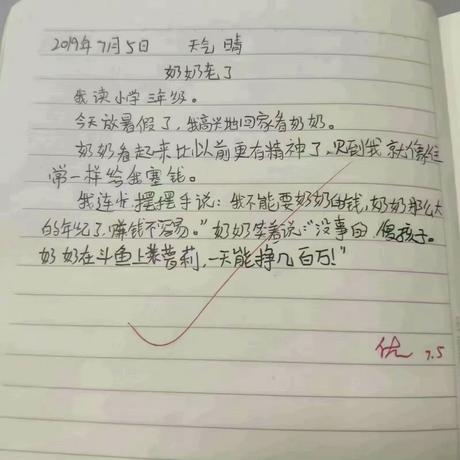 2019年7月5日 天气 晴
奶奶老了
我读小学三年级。
今天放暑假了，我高兴地回家看奶奶。
奶奶看起来比以前更有精神了，见到我就像往
常一样给我塞钱。
我连忙摆摆手说：我不能要奶奶的钱，奶奶那么大
的年纪了，赚钱不容易。”奶奶笑着说：“没事的 傻孩子。
奶奶在斗鱼上装萝莉，一天能挣几百万！”
优 7.5